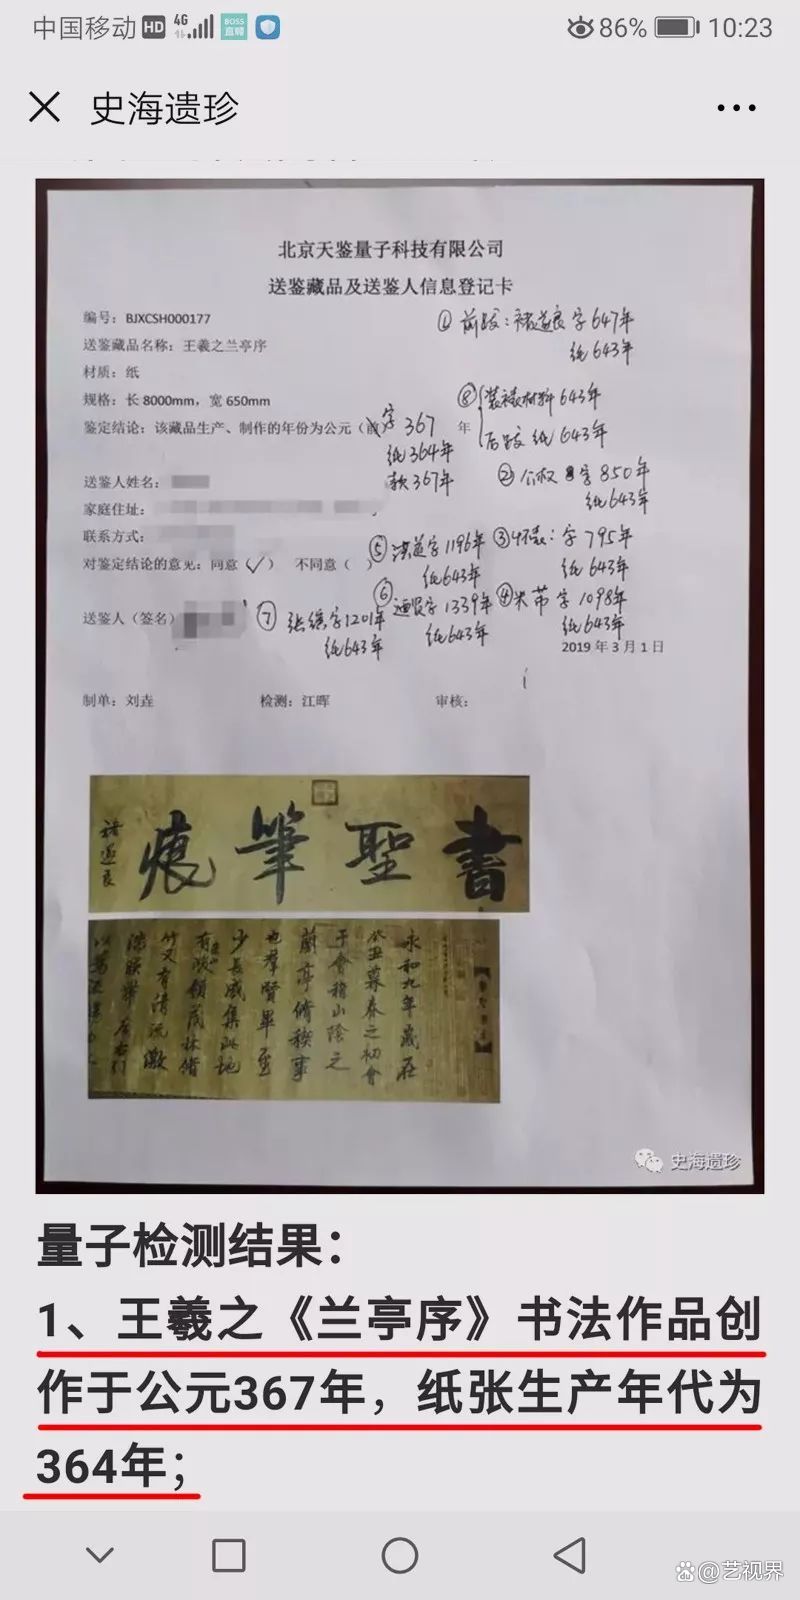 中国移动 HD 4G BOSS直聘 86% 10:23
史海遗珍
北京天鉴量子科技有限公司
送鉴藏品及送鉴人信息登记卡
编号：BJXCSH000177
送鉴藏品名称：王羲之兰亭序
材质：纸
规格：长 8000mm，宽 650mm
鉴定结论：该藏品生产、制作的年份为公元（前 字 367 年
纸 364年
款 367年
①前跋：褚遂良 字 647年
纸 643年
⑧装裱材料 643年
后跋 纸 643年
②公权 字 850年
纸643年
送鉴人姓名：
家庭住址：
联系方式：
③怀素：字 795年
纸 643年
⑤ 字 1196年
纸643年
对鉴定结论的意见：同意（✓） 不同意（ ）
④米芾 字 1098年
纸643年
⑥ 字 1339年
纸643年
送鉴人（签名）
⑦ 字1201年
纸643年
2019 年 3 月 1 日
制单：刘垚 检测：江晖 审核：
書聖筆痕
褚遂良
永和九年歲在
癸丑暮春之初會
于會稽山陰之
蘭亭脩稧事
也羣賢畢至
少長咸集此地
有峻領茂林脩
竹又有清流激
史海遗珍
量子检测结果：
1、王羲之《兰亭序》书法作品创
作于公元367年，纸张生产年代为
364年；
@艺视界